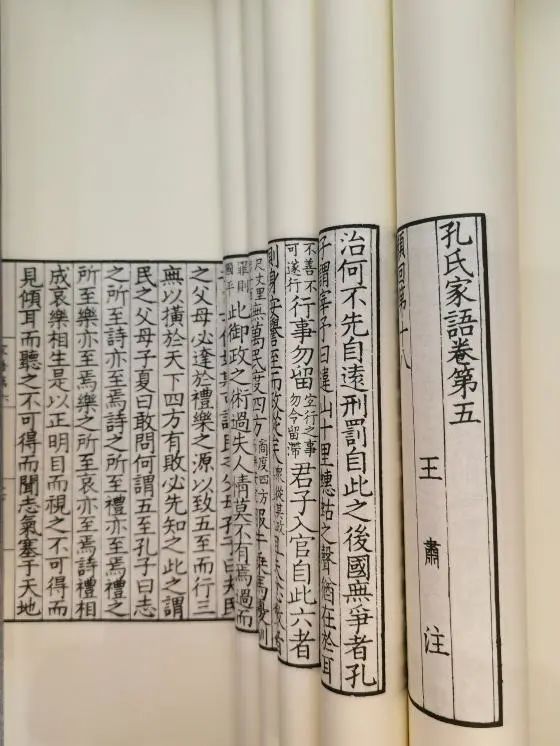 孔氏家語卷第五
王肅注
治何不先自遠刑罰自此之後國無爭者孔
子謂宰予曰違山十里蟪蛄之聲猶在於耳
不善不可遂行行事勿留空行之事勿令留滯君子入官自此六者
則身安譽至而政從矣
無萬民度四方
此御政之術過失人情莫不有焉過而
之父母必達於禮樂之源以致五至而行三
無以橫於天下四方有敗必先知之此之謂
民之父母子夏曰敢問何謂五至孔子曰志
之所至詩亦至焉詩之所至禮亦至焉禮之
所至樂亦至焉樂之所至哀亦至焉詩禮相
成哀樂相生是以正明目而視之不可得而
見傾耳而聽之不可得而聞志氣塞于天地